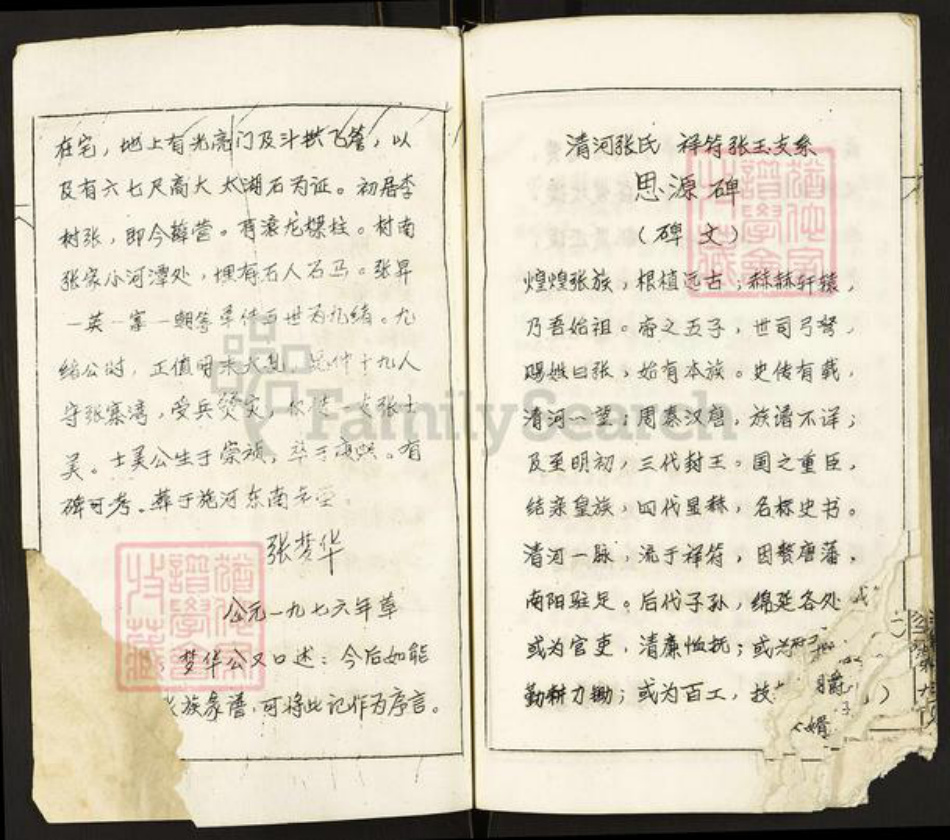 在宅，地上有光亮门及斗拱飞簷，以
及有六七尺高大太湖石为证。初居李
树张，即今薛营。有滚龙樑柱。村南
张家小河潭处，埋有石人石马。张昇
一英一寨一朝等单传五世为九绪。九
绪公时，正值明末大乱，昆仲十九人
守张寨湾，受兵燹灾，仅一支张士
美。士美公生于崇祯，卒于康熙。有
碑可考。葬于施河东南老茔。
张梦华
公元一九七六年草
梦华公又口述：今后如能
族家谱，可将此记作为序言。
清河张氏 祥符张玉支系
思源碑
（碑文）
煌煌张族，根植远古；赫赫轩辕，
乃吾始祖。帝之五子，世司弓弩，
赐姓曰张，始有本族。史传有载，
清河一望；周秦汉唐，族谱不详；
及至明初，三代封王。国之重臣，
结亲皇族，四代显赫，名标史书。
清河一脉，流于祥符，因赘唐藩，
南阳驻足。后代子孙，绵延各处
或为官吏，清廉恤抚；或为
勤耕力锄；或为百工，技
婿
FamilySearch